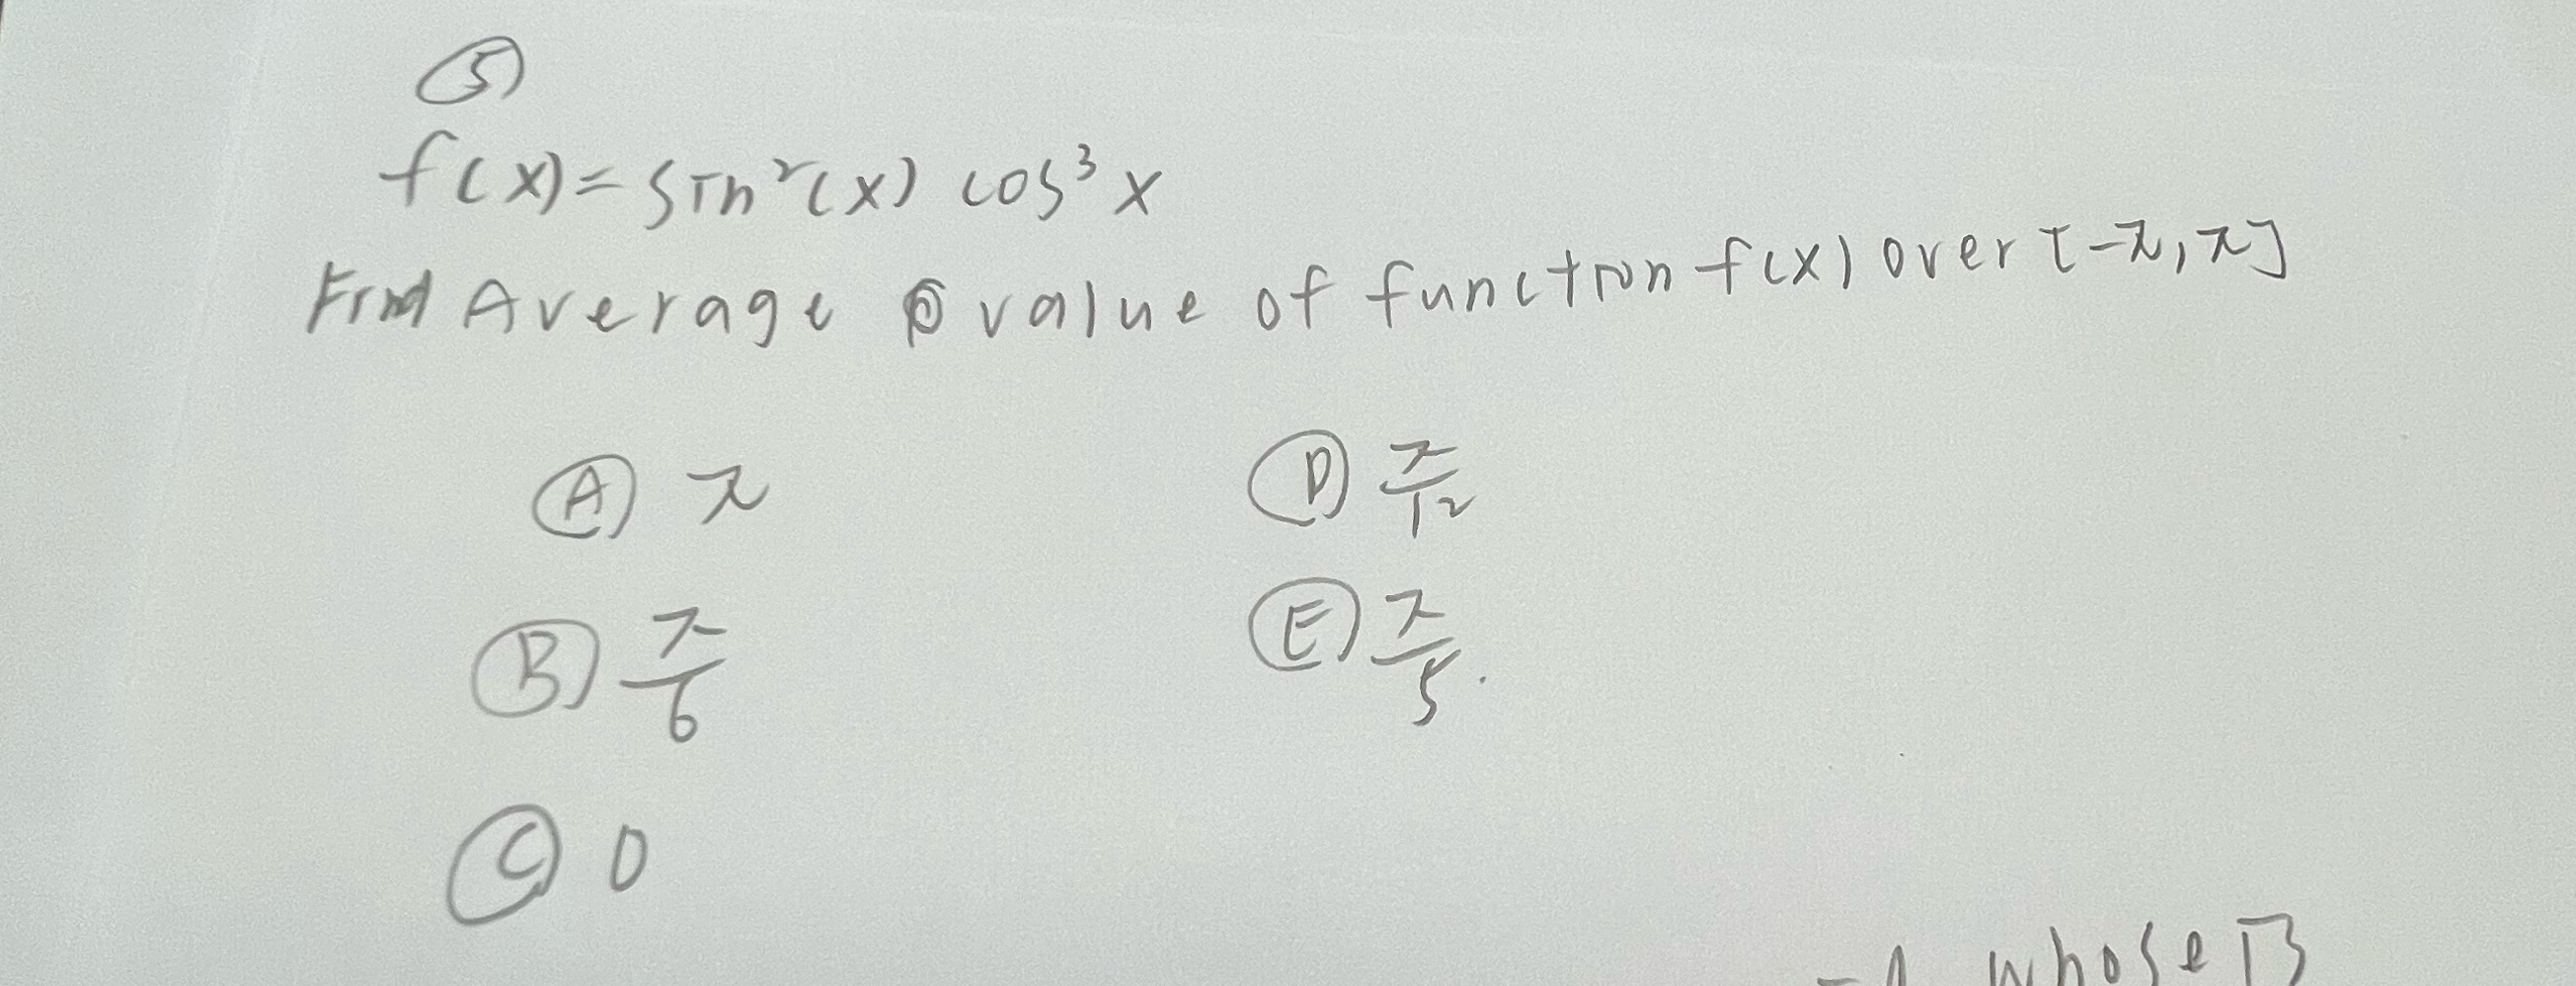 ⑤
f(x)=sin²(x) cos³x
Find Average value of function f(x) over [-π, π]
Ⓐ π
Ⓓ π/12
Ⓑ π/6
Ⓔ π/5.
Ⓒ 0
whose